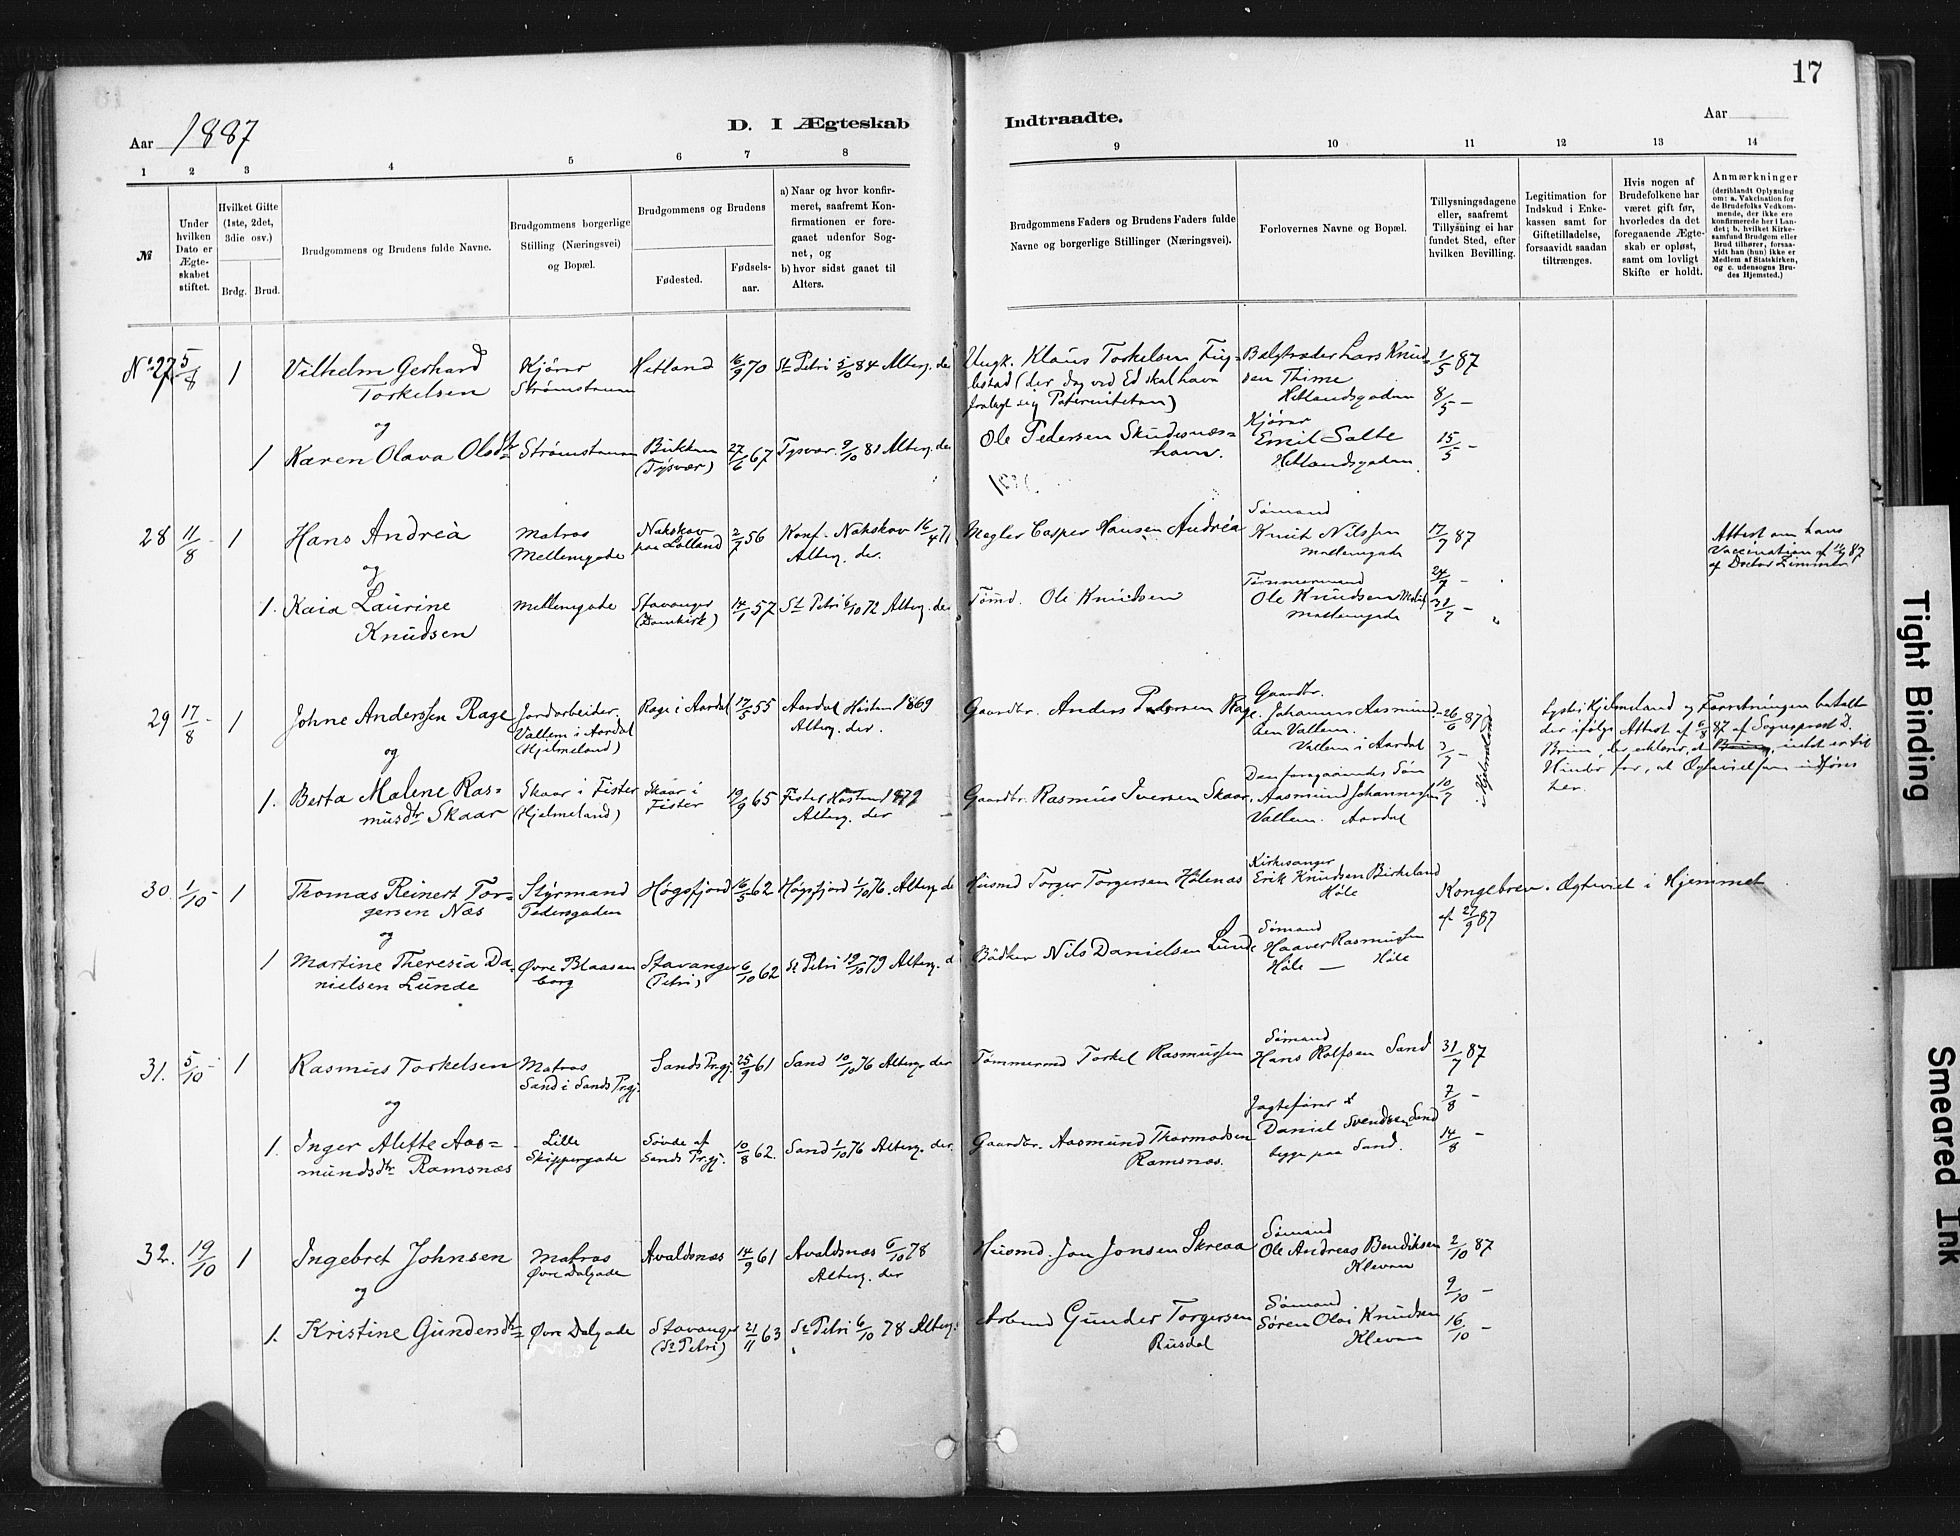 17
Aar 1887
D. I Ægteskab
Indtraadte.
Aar
1 2 3 4 5 6 7 8
9 10 11 12 13 14
№
Under hvilken Dato er Ægteskabet stiftet.
Hvilket Gifte (1ste, 2det, 3die osv.)
Brdg. Brud.
Brudgommens og Brudens fulde Navne.
Brudgommens borgerlige Stilling (Næringsvei) og Bopæl.
Brudgommens og Brudens
Fødested. Fødsels-aar.
a) Naar og hvor konfir-
meret, saafremt Kon-
firmationen er fore-
gaaet udenfor Sog-
net, og
b) hvor sidst gaaet til
Alters.
Brudgommens Faders og Brudens Faders fulde
Navne og borgerlige Stillinger (Næringsvei).
Forlovernes Navne og Bopæl.
Tillysningsdagene
eller, saafremt
Tillysning ei har
fundet Sted, efter
hvilken Bevilling.
Legitimation for
Indskud i Enke-
kassen samt for
Giftetilladelse,
forsaavidt saadan
tiltrænges.
Hvis nogen af
Brudefolkene har
været gift før,
hvorledes da det
foregaaende Ægte-
skab er opløst,
samt om lovligt
Skifte er holdt.
Anmærkninger
(deriblandt Oplysning
om: a. Vakcination for
de Brudefolks Vedkom-
mende, der ikke ere
konfirmerede her i Lan-
det; b. hvilket Kirke-
samfund Brudgom eller
Brud tilhører, forsaa-
vidt han (hun) ikke er
Medlem af Statskirken,
og c. udensogns Bru-
des Hjemsted.)
No 27 5/8 1 Vilhelm Gerhard Torkelsen Kjører Strømstenen Hetland 16/9 70 St Petri 5/10 84 Alterg. der
Ungk. Klaus Torkelsen (der dog ved Ed skal have fralagt sig Paterniteten) Lars Knudsen Thime Hetlandsgaden 1/5 87 8/5 -
og
1 Karen Olava Olsdtr Strømstenen Bukken (Tysvær) 27/6 67 Tysvær 9/10 81 Alterg. der
Ole Pedersen Skudesnæshavn. Kjører Emil Salte Hetlandsgaden 15/5 -
28 11/8 - 1 Hans Andréa Matros Møllergade Nakskov paa Lolland 2/7 56 Konf. Nakskov 16/4 71 Alterg. der.
Megler Casper Hansen Andréa Sømand Knut Nilssen Møllergade 17/7 87
Attest om hans Vaccination af 11/7 87 af Doctor Zimmer
og
1. Kaia Laurine Knudsen Møllergade Stavanger (Domkirk) 14/1 57 St Petri 6/10 72 Alterg. der
Tømd. Ole Knudsen Tømmermand Ole Knudsen Møllergade 24/7 - 31/7 -
29 17/8 - 1 Johne Anderssen Rage Jordarbeider Vallem i Aardal (Hjelmeland) Rage i Aardal 17/5 55 Aardal Høsten 1869 Alterg. der.
Gaardbr. Anders Pedersen Rage. Gaardbr. Johannes Aasmundsen Vallem. Vallem i Aardal 26/6 87 3/7 -
i Hjelmeland
Lyst i Hjelmeland og Forretningen betalt der ifølge Attest af 6/8 87 af Sogneprest D. Bruun, intet er til Hinder for, at Ægtevielsen udføres her.
og
1. Berta Malene Rasmusdtr Skaar Skaar i Fister (Hjelmeland) Skaar i Fister 19/9 65 Fister Høsten 1879 Alterg. der
Gaardbr. Rasmus Iversen Skaar. Den foregaaendes Søn Aasmund Johannessen Vallem. Aardal 10/7
30. 1/10 - 1 Thomas Reinert Torgersen Næs Styrmand Pedersgaden Høgsfjord 16/5 62 Høgsfjord 1/10 76. Alterg. de
Husmd Torger Torgersen Hølenæs Kirkesanger Erik Knudsen Birkeland Høle Kongebrev. af 27/9 87 Ægteviet i Hjemmet
og
1 Martine Theresia Danielsen Lunde Øvre Blaasenborg Stavanger (Petri) 6/10 62 St Petri 19/10 79 Alterg. d
Bødker Nils Danielsen Lunde Sømand Haaver Rasmussen Høle — Høle
31. 5/10 - 1 Rasmus Torkelsen Matros Sand i Sands Prgj. Sands Prgj. 25/9 61 Sand 10/10 76 Alterg. der
Tømmermd Torkel Rasmussen Sømand Hans Rolfsen Sand 31/7 87 7/8 -
og
1. Inger Alette Aasmundsdtr Ramsnæs Lille Skippergade Søvde af Sands Prgj. 10/8 62. Sand 1/10 76 Alterg. der.
Gaardbr. Aasmund Thormodsen Ramsnæs. Jagtefører Daniel Svendsen Sand begge paa Sand. 14/8 -
32. 19/10 1 Ingebret Johnsen Matros Øvre Dalgade Avaldsnæs 14/9 61 Avaldsnæs 6/10 78 Alterg. der
Husmd. Jon Jonsen Skreaa Sømand Ole Andreas Bendiksen Kleven 2/10 87 9/10 -
og
1. Kristine Gundersdtr Øvre Dalgade Stavanger (St Petri) 21/11 63 St Petri 6/10 78 Alterg.
Arbmd Gunder Torgersen Rusdal Sømand Søren Olai Knudsen Kleven 16/10 -
Tight Binding
Smeared Ink